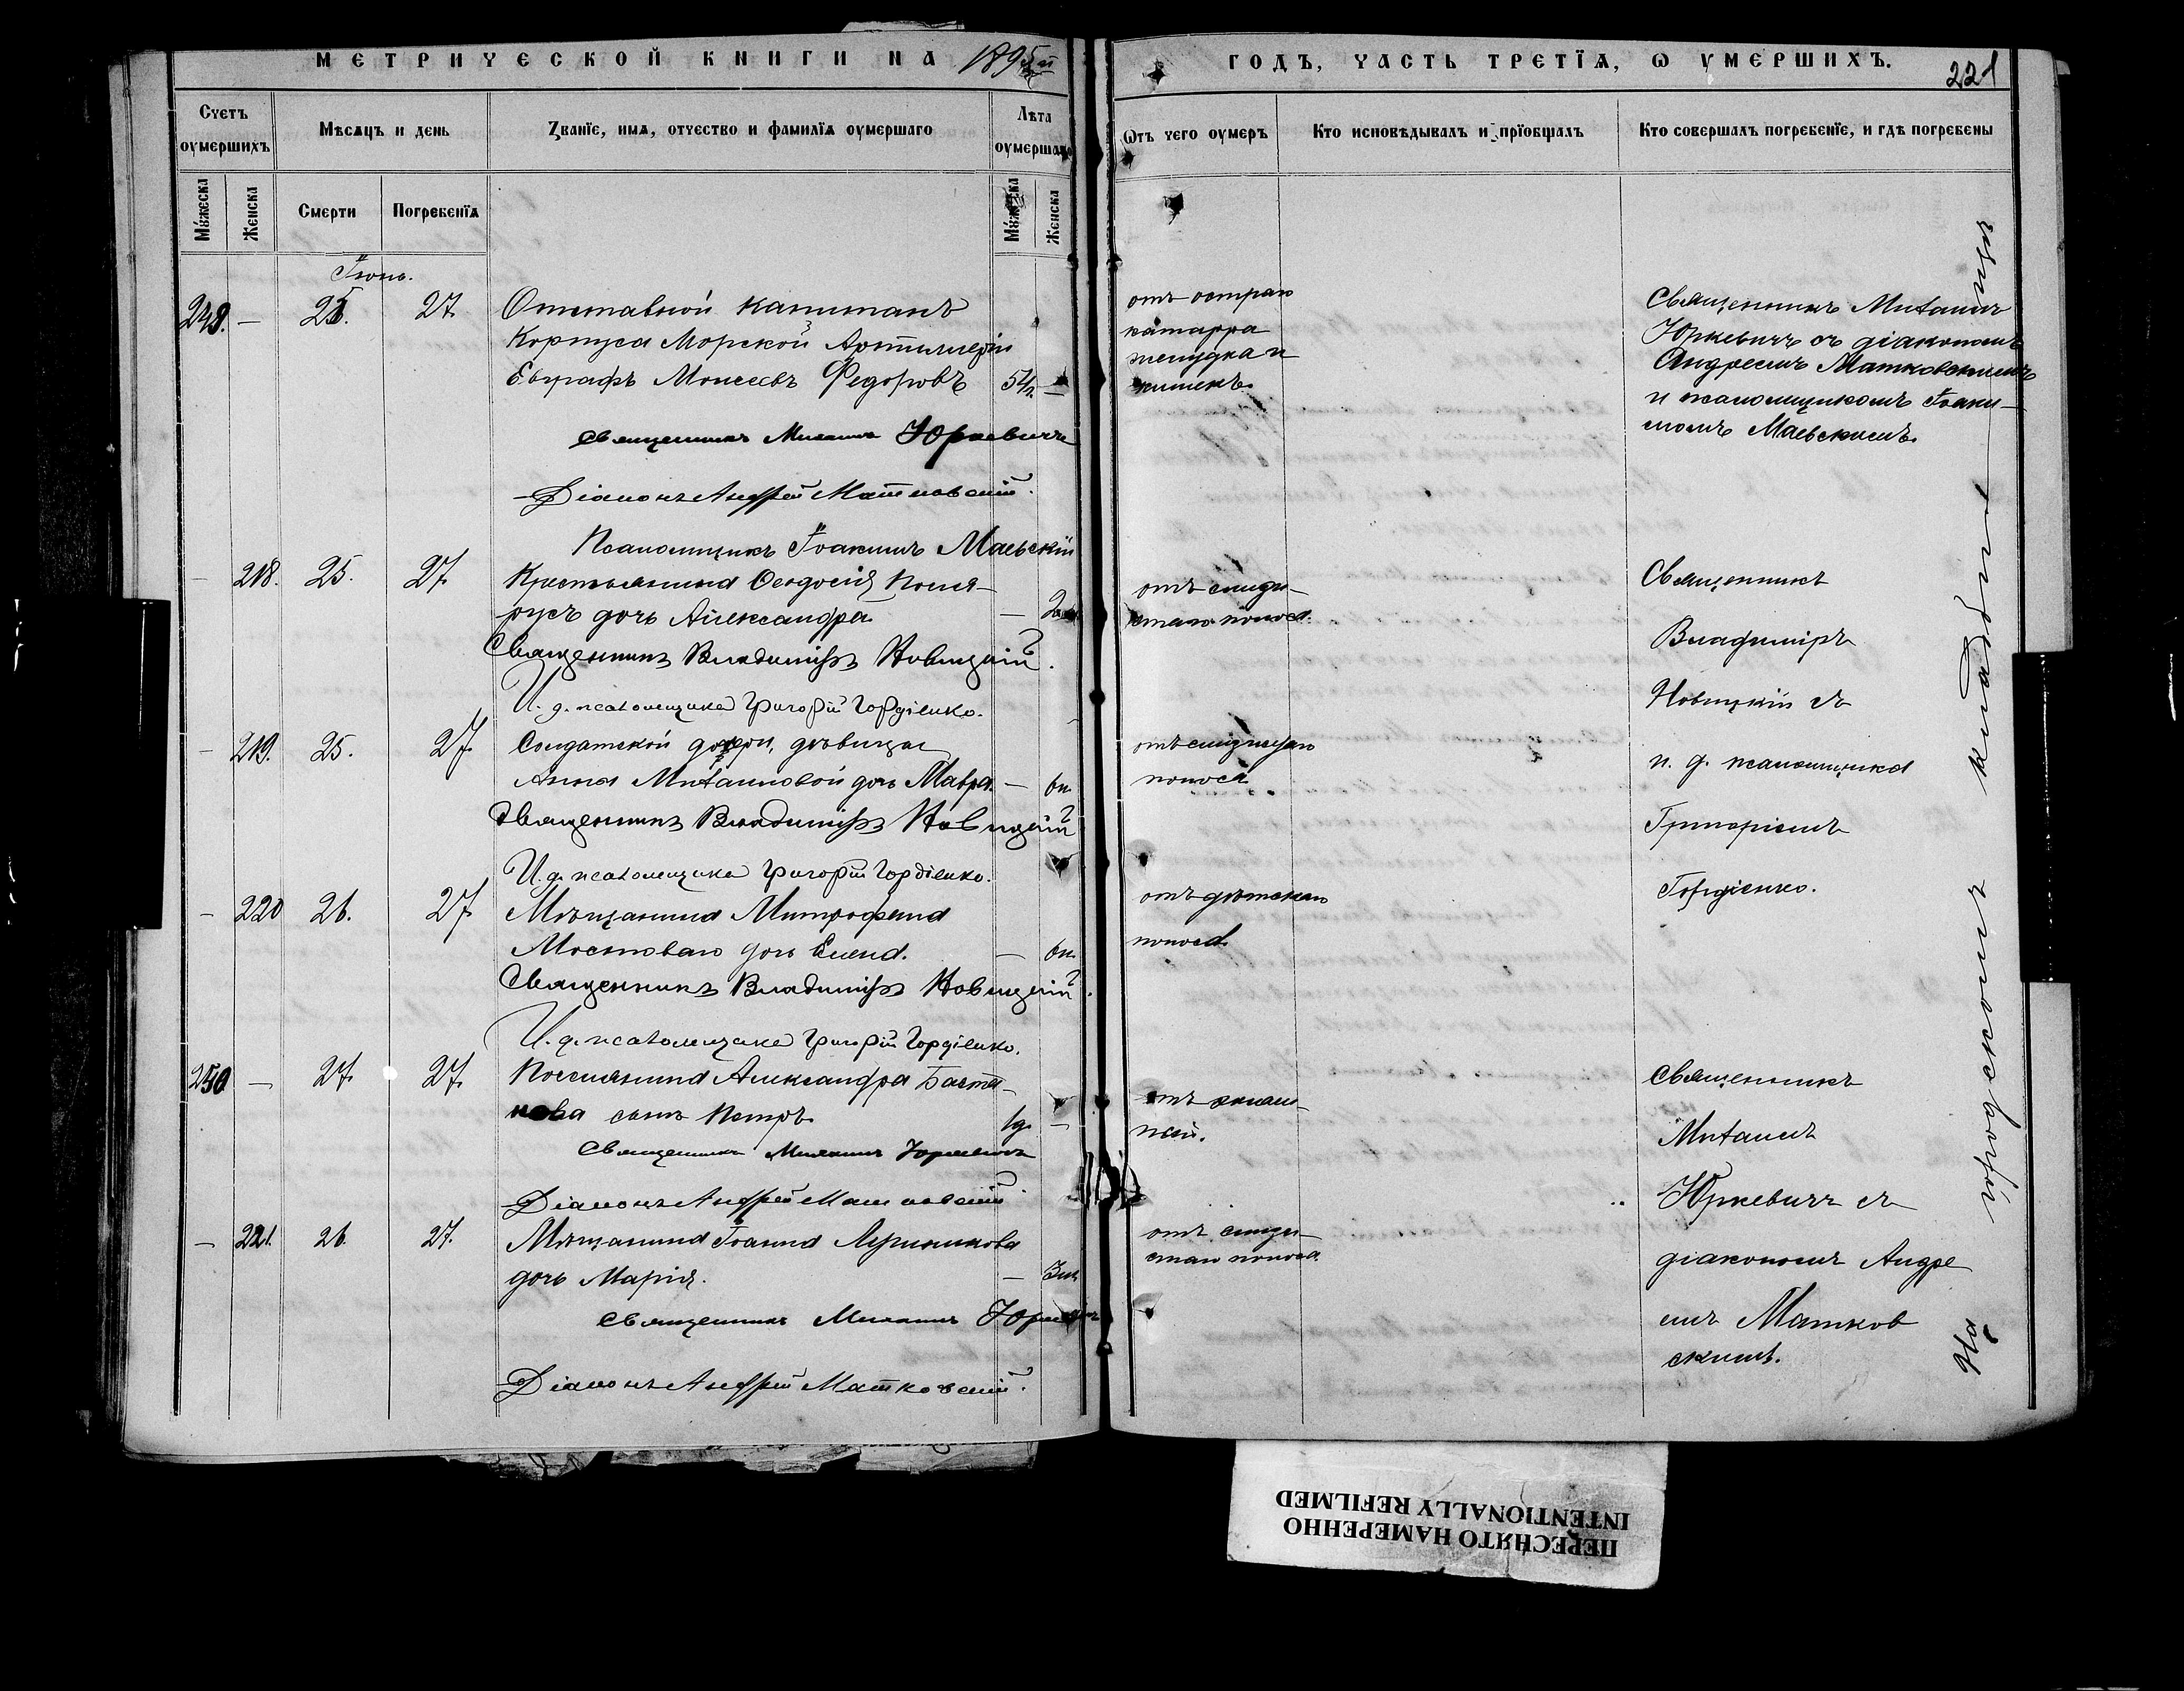 МЕТРИЧЕСКОЙ КНИГИ НА 1895й
ГОДЪ, ЧАСТЬ ТРЕТІЯ, Ѡ УМЕРШИХЪ.
221
Счетъ оумершихъ
Мѣсяцъ и день
Званіе, имя, отчество и фамилія оумершаго
Лѣта оумершаго
Ѿтъ чего оумеръ
Кто исповѣдывалъ и пріобщалъ
Кто совершалъ погребеніе, и гдѣ погребены
Мужеска
Женска
Смерти
Погребенія
Мужеска
Женска
Іюнь.
— 27. Отставной капитанъ
Корпуса Морской Артиллеріи
Евграфъ Моисеевъ Федоровъ 54л. —
отъ остраго
катарра
желудка и
кишекъ.
Священникъ Михаилъ
Юркевичъ съ діакономъ
Андреемъ Матковскимъ
и псаломщикомъ Іоаки-
момъ Маевскимъ.
Священникъ Михаилъ Юркевичъ
Діаконъ Андрей Матковскій.
Псаломщикъ Іоакимъ Маевскій
— 218. 25. 27. Крестьянина Феодосія
дочь Александра. —
отъ
поноса.
Священникъ
Владиміръ
Новицкій съ
и. д. псаломщика
Григоріемъ
Гордіенко.
Священникъ Владиміръ Новицкій.
И. д. псаломщика Григорій Гордіенко.
— 219. 25. 27. Солдатской дочери, дѣвицы
Анны Михайловой дочь Мавра. — 6м.
отъ
поноса
Священникъ Владиміръ Новицкій
И. д. псаломщика Григорій Гордіенко.
— 220 26. 27 Мѣщанина Митрофана
Мостового дочь Елена. — 6м.
отъ дѣтскаго
поноса.
Священникъ Владиміръ Новицкій.
И. д. псаломщика Григорій Гордіенко.
250 — 27. 27. Поселянина Александра Бахта-
нова сынъ Петръ. 1г. —
отъ эклам-
псіи.
Священникъ
Михаилъ
Юркевичъ съ
діакономъ Андре
емъ Матков
скимъ.
Священникъ Михаилъ Юркевичъ
Діаконъ Андрей Матковскій
— 221. 26. 27. Мѣщанина Іоанна
дочь Марія. —
отъ
поноса.
Священникъ Михаилъ
Діаконъ Андрей Матковскій.
На городскомъ кладбищѣ
ПЕРЕСНЯТО НАМЕРЕННО
INTENTIONALLY REFILMED